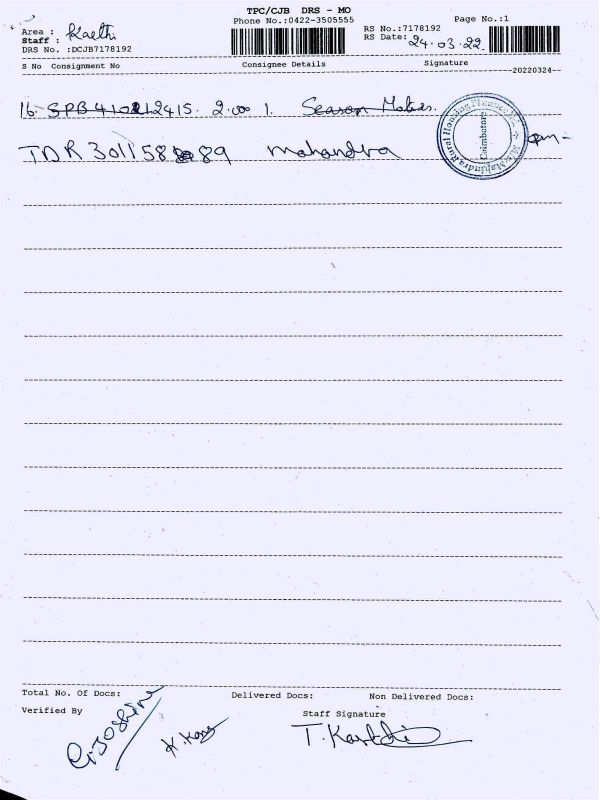 TPC/CJB DRS - MO
Phone No.:0422-3505555
Page No.:1
Area :
Staff : Karthi
RS No.:7178192
RS Date: 24.03.22
DRS No. :DCJB7178192
S No Consignment No Consignee Details Signature
20220324
16 SPB410212415. 2.000 1. Season
TDR 301158 89 Mahandra
Mahindra Rural Housing Finance
Coimbatore
Total No. Of Docs: Delivered Docs: Non Delivered Docs:
Verified By Staff Signature
G. Joshine
T. Karthi